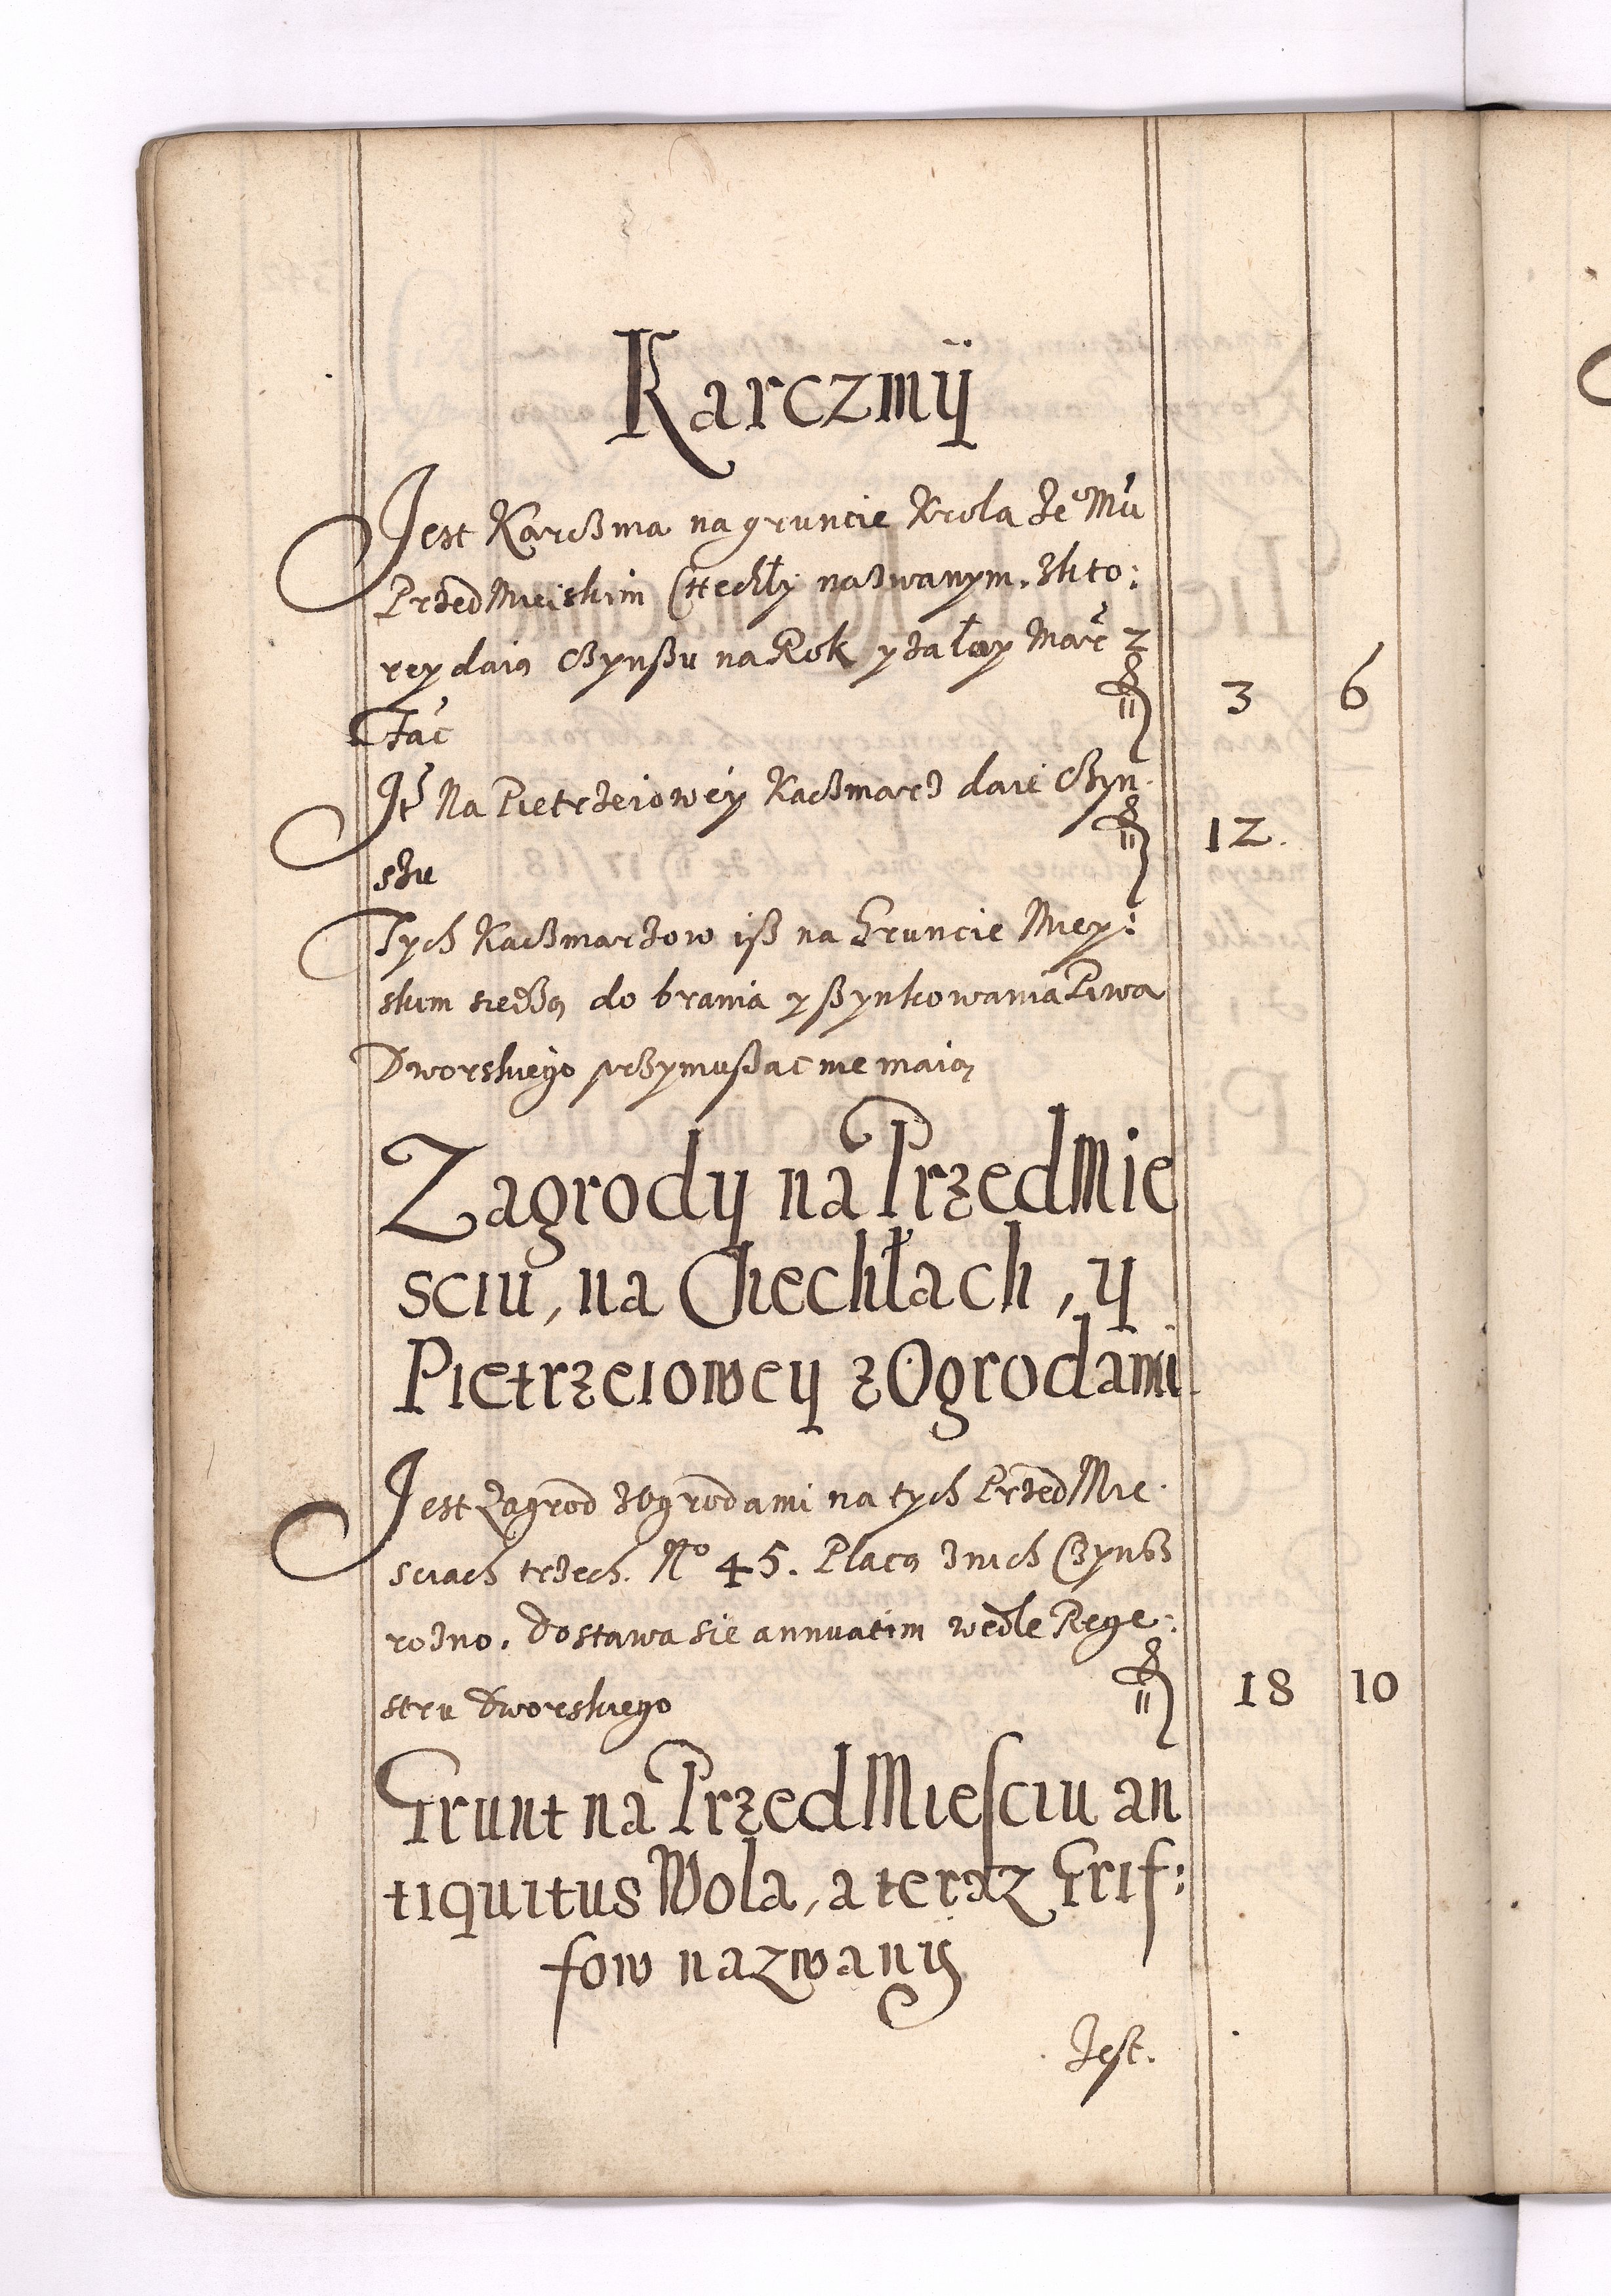 Karczmÿ
Jest Karczma na gruncie Krola Je° Mći
Przed Mieiskim Chechły nazwanym. Zkto:
rey daią Czynszu na Rok y za łoy Marc 2
facit
ƒ 3 6
It Na Pietrzeiowey Kaczmarz daie Czyn
szu
ƒ 12.
Tych Kaczmarzow isz na Gruncie Miey:
skim siedzą do brania y szynkowania Piwa
Dworskiego przymuszac nie maią
Zagrody na PrzedMie
sciu, na Chechłach, y
Pietrzeiowey z Ogrodami
Jest Zagrod z Ogrodami na tych PrzedMie
sciach trzech. No 45. Płacą z nich Czynsz
rozno. Dostawa sie annuatim wedle Rege:
stru Dworskiego
ƒ 18 10
Grunt na PrzedMiesciu an
tiquitus Wola, a teraz Grif:
fow nazwany
Jest.